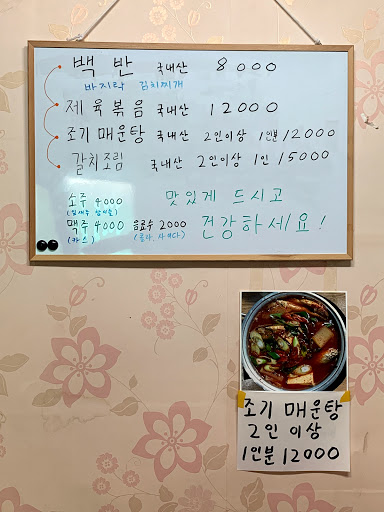 백반 국내산 8000
바지락 김치찌개
제육볶음 국내산 12000
조기 매운탕 국내산 2인이상 1인분 12000
갈치조림 국내산 2인이상 1인 15000
소주 4000
맛있게 드시고
맥주 4000 음료수 2000
(카스) (콜라, 사이다)
건강하세요!
조기 매운탕
2인 이상
1인분 12000